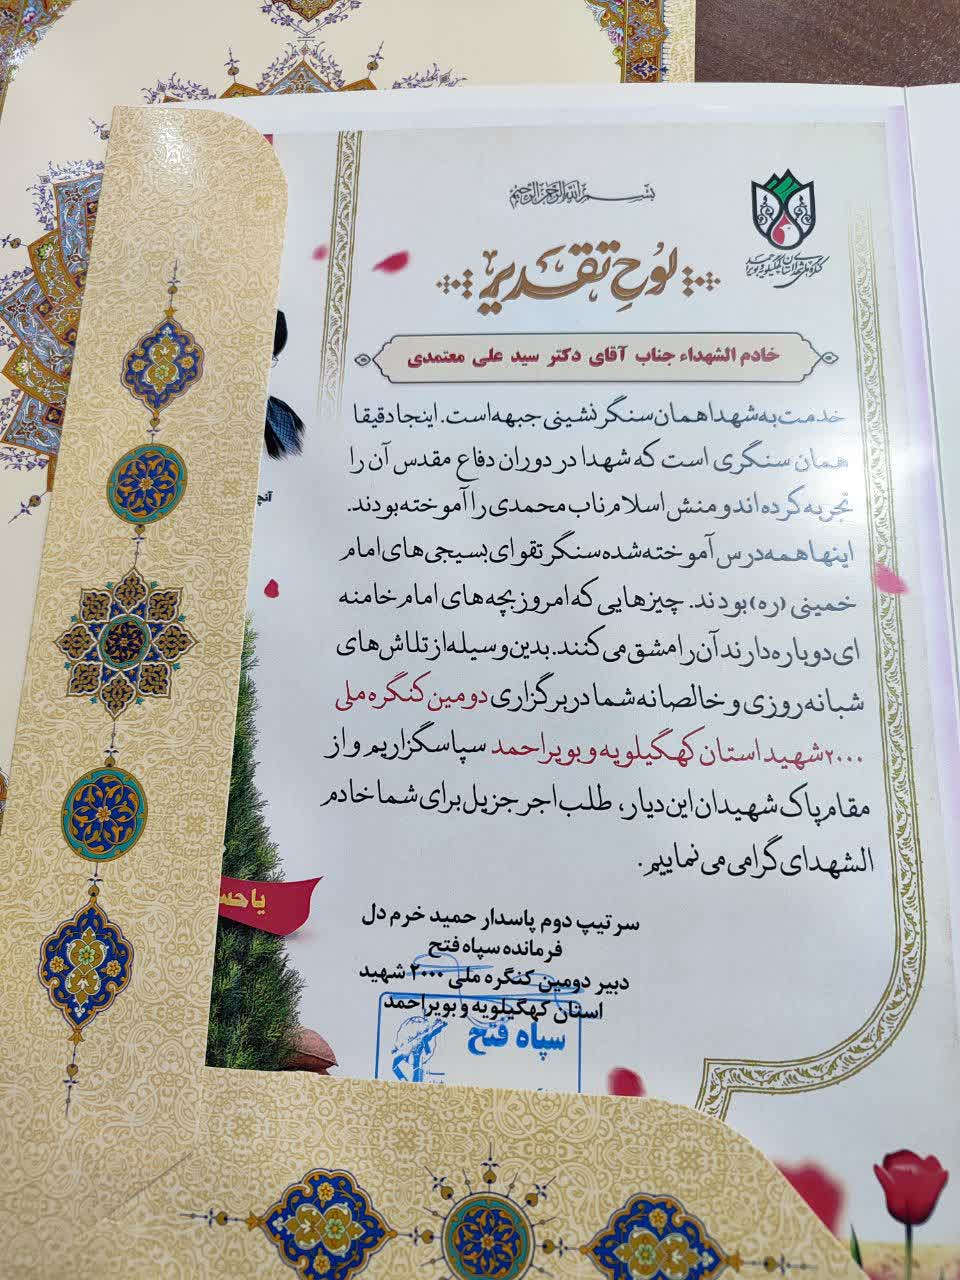 بسم الله الرحمن الرحیم
کنگره ملی شهدای استان کهگیلویه و بویراحمد
لوح تقدیر
خادم الشهداء جناب آقای دکتر سید علی معتمدی
خدمت به شهدا همان سنگر نشینی جبهه است. اینجا دقیقا
همان سنگری است که شهدا در دوران دفاع مقدس آن را
تجربه کرده اند و منش اسلام ناب محمدی را آموخته بودند.
اینها همه درس آموخته شده سنگر تقوای بسیجی های امام
خمینی (ره) بودند. چیزهایی که امروز بچه های امام خامنه
ای دوباره دارند آن را مشق می کنند. بدین وسیله از تلاش های
شبانه روزی و خالصانه شما در برگزاری دومین کنگره ملی
۲۰۰۰ شهید استان کهگیلویه و بویراحمد سپاسگزاریم و از
مقام پاک شهیدان این دیار، طلب اجر جزیل برای شما خادم
الشهدای گرامی می نماییم.
یا حس
سرتیپ دوم پاسدار حمید خرم دل
فرمانده سپاه فتح
دبیر دومین کنگره ملی ۲۰۰۰ شهید
استان کهگیلویه و بویراحمد
سپاه فتح